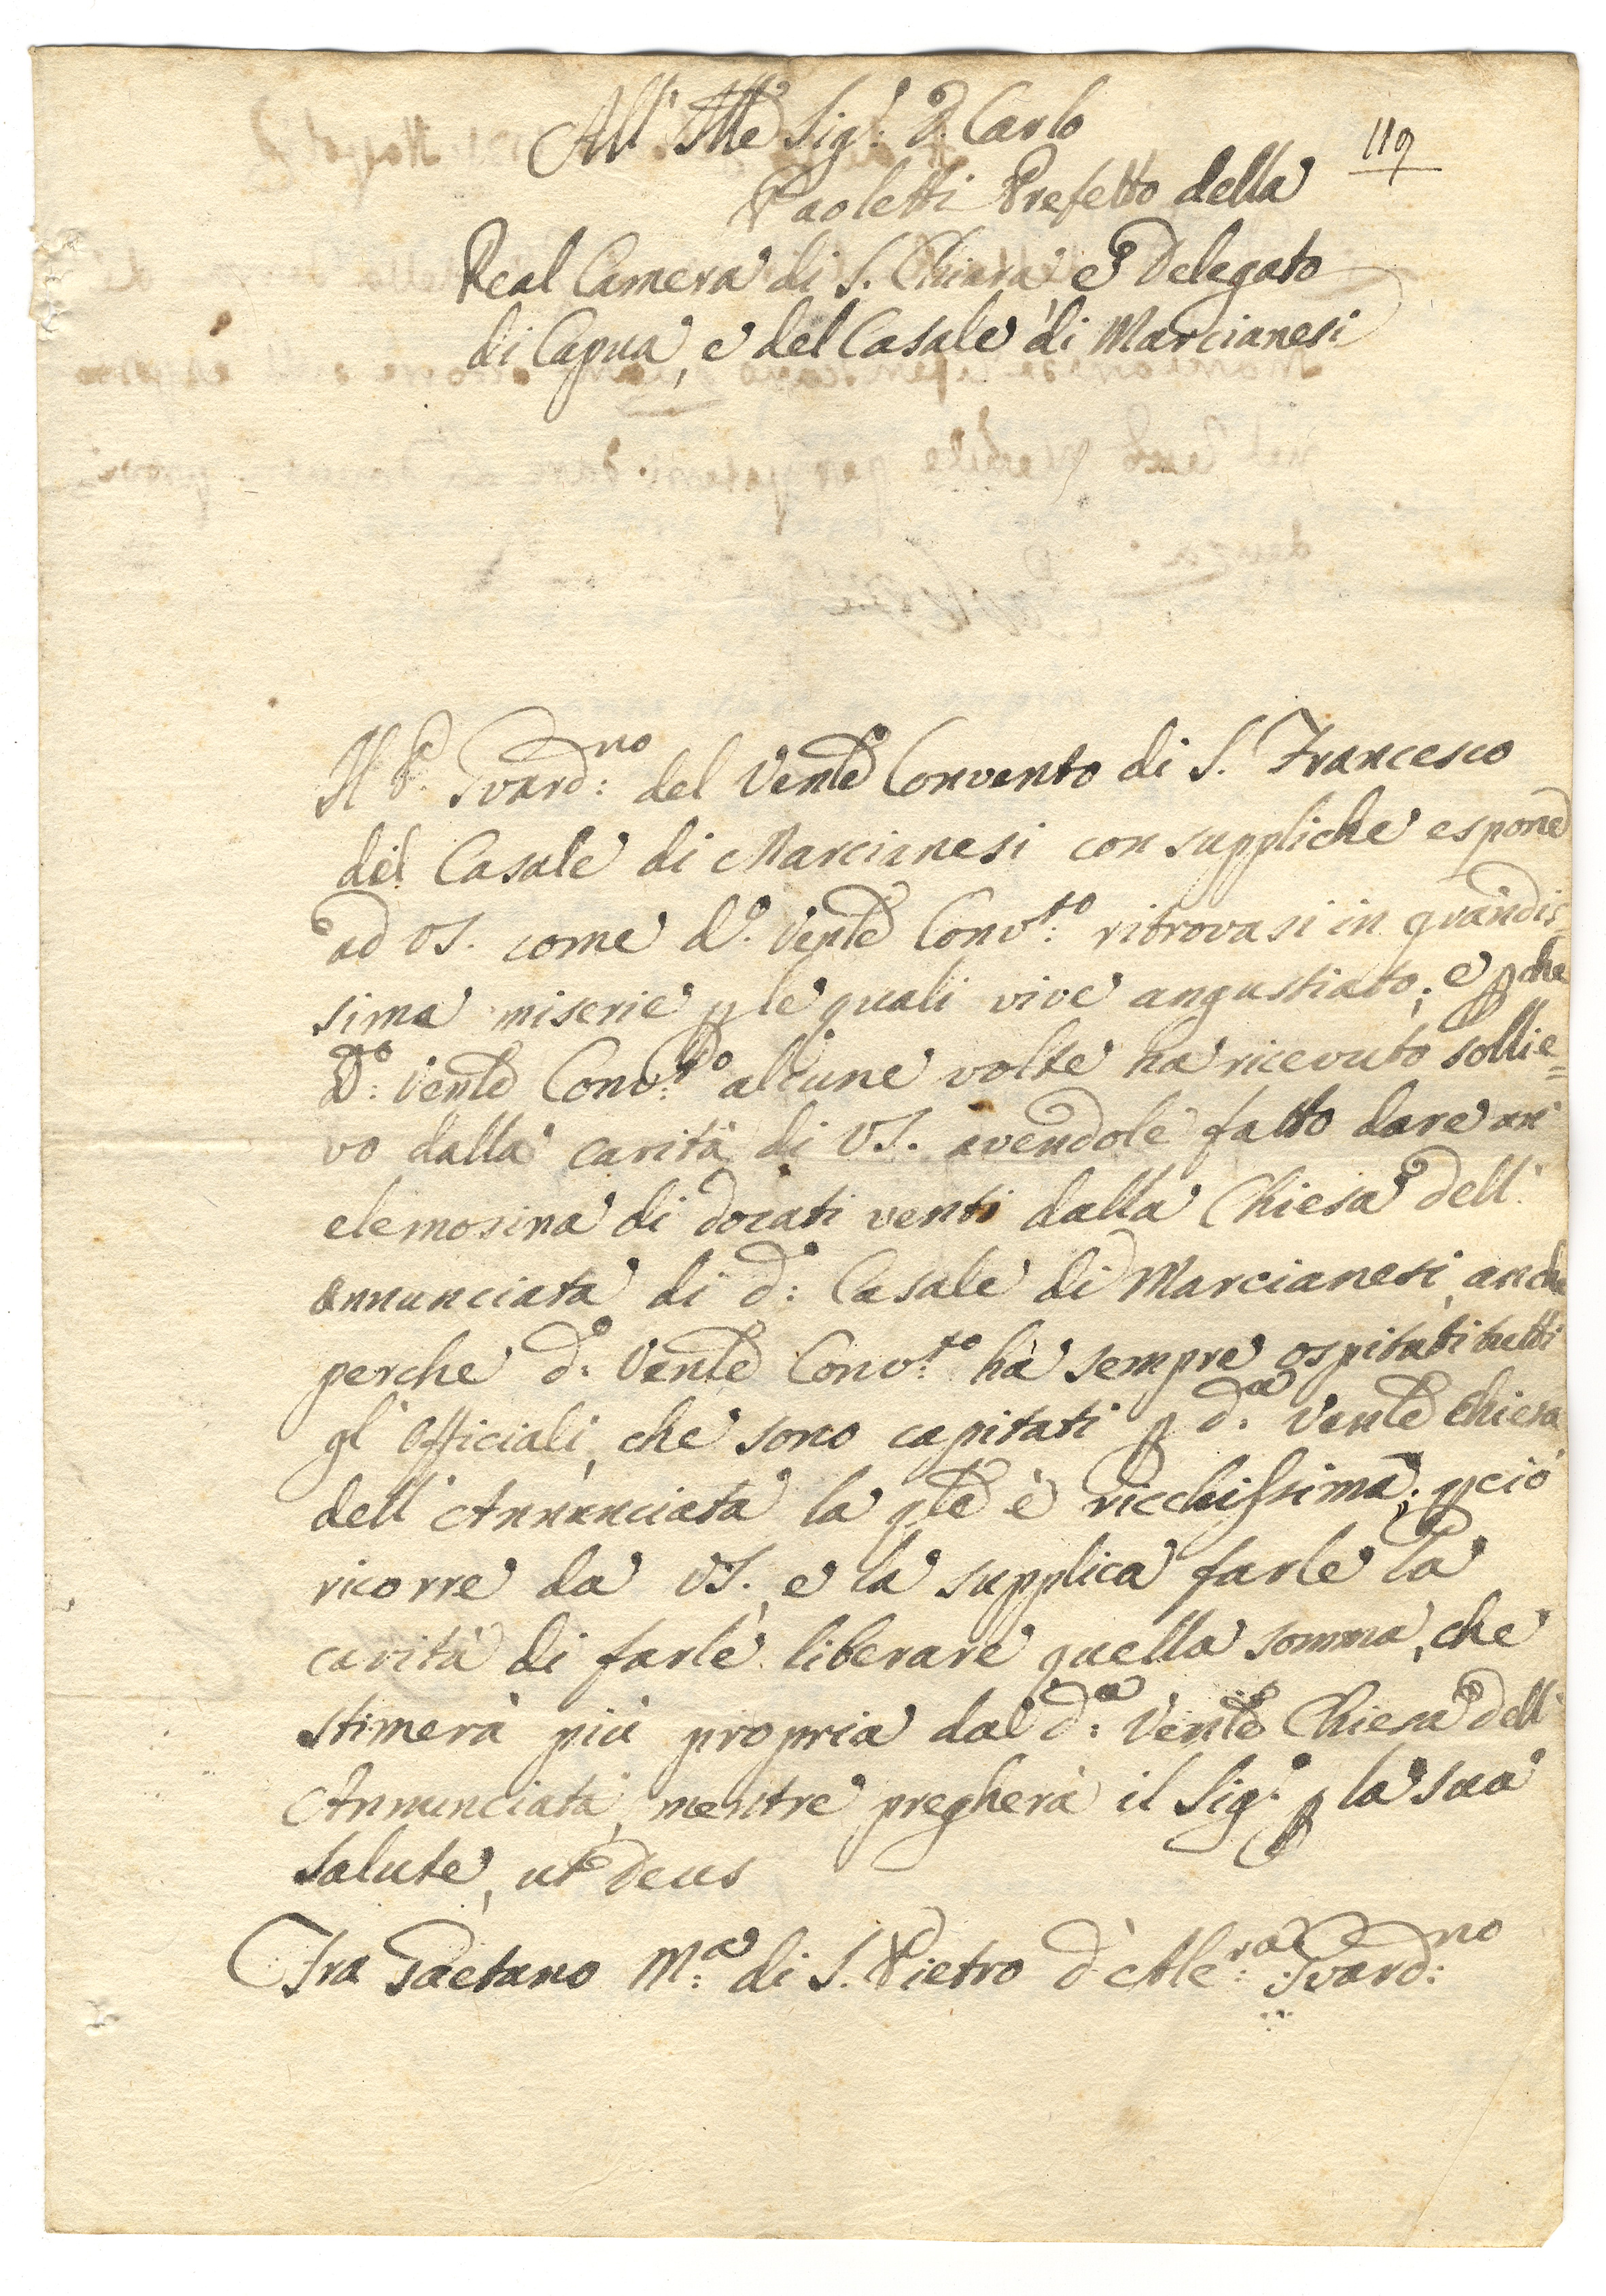 All' Ill͞e Sig.r D. Carlo
119
Paoletti Prefetto della
Real Camera di S. Chiara e Delegato
di Capua, e del Casale di Marcianesi
Il P. Guard:no del Ven͞le Convento di S. Francesco
del Casale di Marcianesi con suppliche espone
ad VS. come d.o Ven͞le Conv:to ritrovasi in grandis=
sima miserie ꝑ le quali vive angustiato; e ꝑche
d:to Ven͞le Conv:to alcune volte ha ricevuto sollie=
vo dalla carità di VS. avendole fatto dare un'
elemosina di docati venti dalla Chiesa dell'
Annunciata di d:o Casale di Marcianesi, anche
perche d.o Ven͞le Conv.to hà sempre ospitati tutti
gl' Officiali, che sono capitati ꝑ d.a Ven͞le Chiesa
dell' Annunciata la q͞le è ricchissima; ꝑciò
ricorre da VS. e la supplica farle la
carità di farle liberare quella somma, che
stimerà più propria dal d:a Ven͞le Chiesa dell'
Annunciata, mentre pregherà il Sig.r ꝑ la sua
salute, ut Deus
Fra Gaetano M:a di S. Pietro d'Alc:ra Guard:no